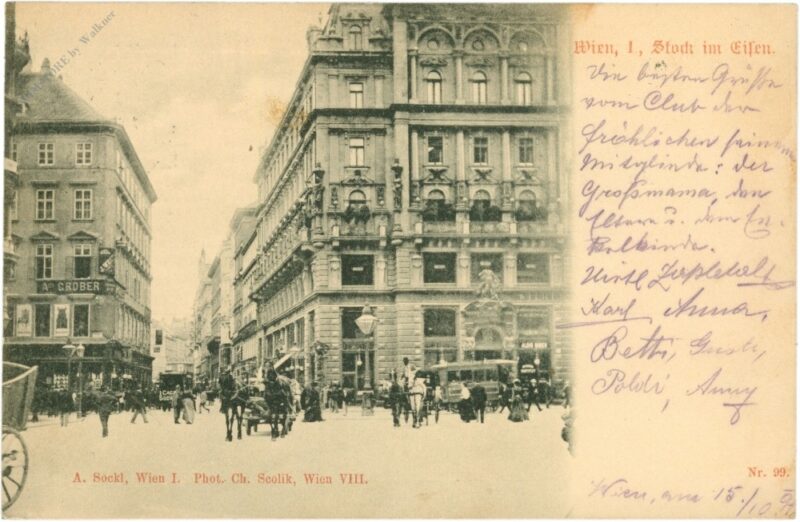 Wien, I, Stock im Eisen.
Die besten Grüße
vom Club der
fröhlichen
Mitglieder: der
Großmama, den
Eltern u. dem En-
kelkinde.
Karl, Anna,
Betti, Gusti,
Poldi, Anny
A. GROBER
A. Sockl, Wien I. Phot. Ch. Scolik, Wien VIII.
Nr. 99.
Wien, am 15./10.
by Walkner